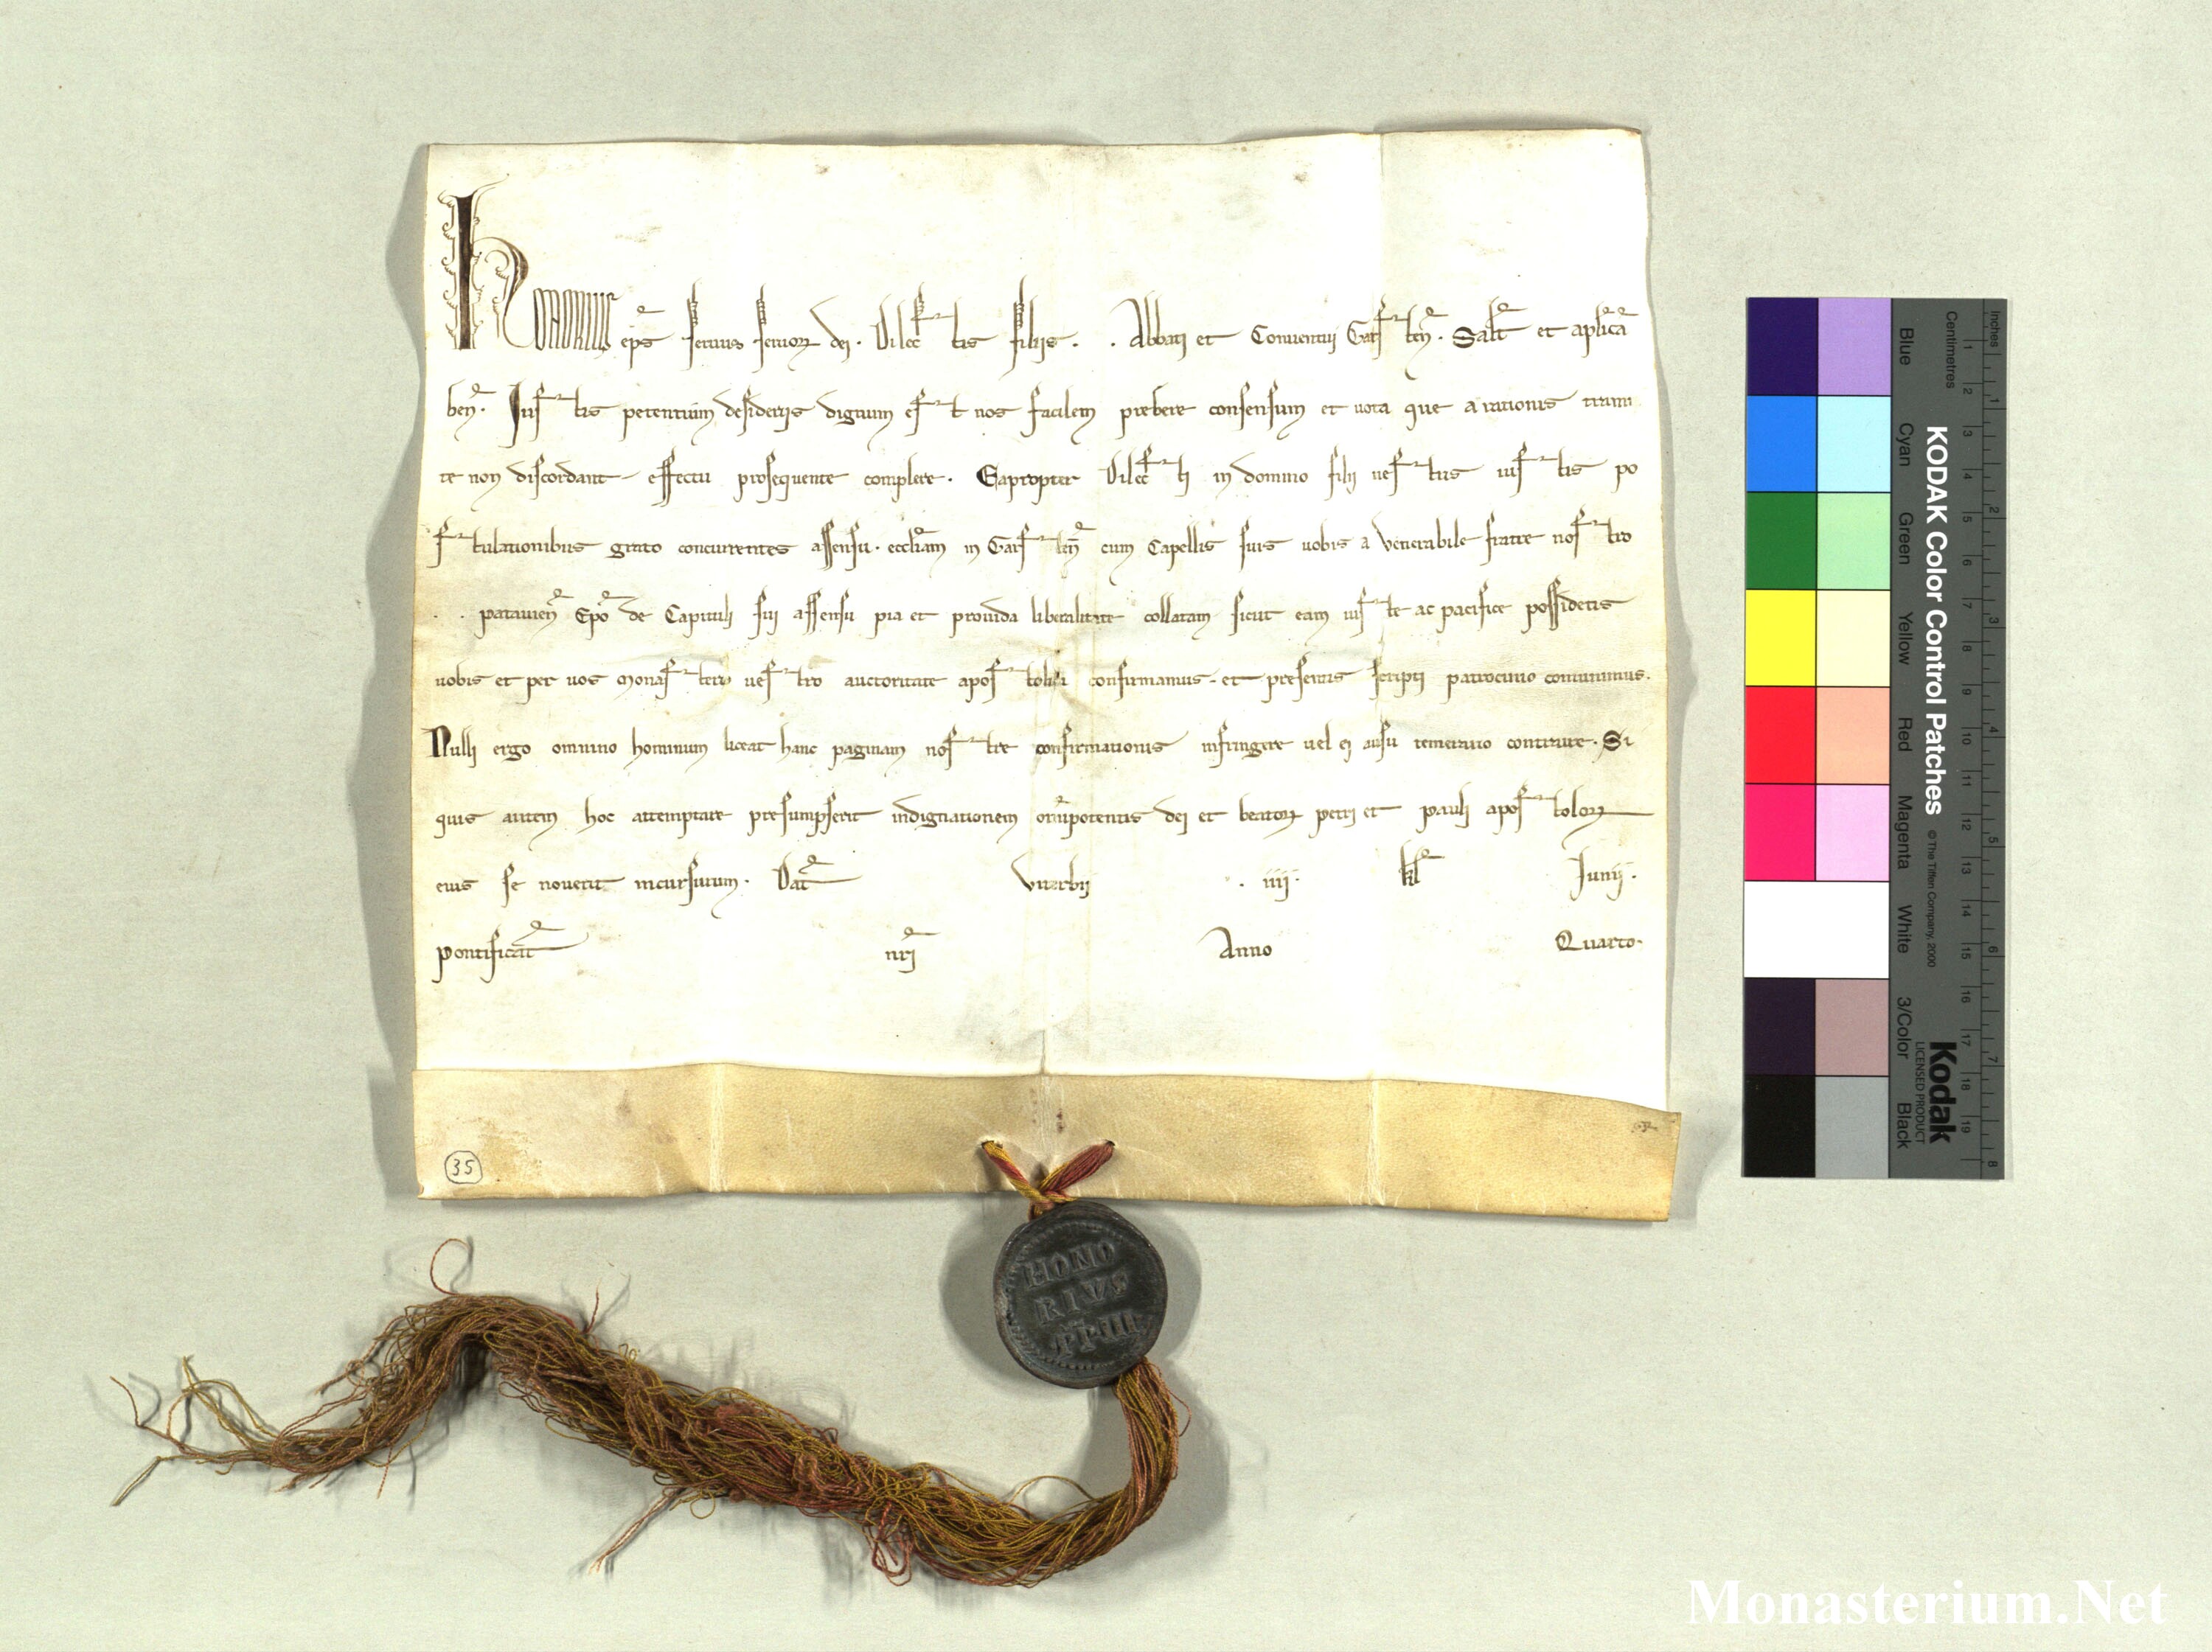 HONORIUS ep̄s seruus seruoꝝ dei. Dilectis filiis . . Abbati et Conuentui Garsten̄. Salt̄ et aplicā
ben̄. Iustis petentium desideriis dignum est nos facilem prebere consensum et uota que a rationis trami
te non discordant effectu prosequente complere. Eapropter Dilecti in domino filii uestris iustis po
stulationibus grato concurrentes assensu. eccliam in Garsten̄ cum Capellis suis uobis a venerabile fratre nostro
. . patauien̄ Epō de Capituli sui assensu pia et prouida liberalitate collatam sicut eam iuste ac pacifice possidetis
uobis et per uos monasterio uestro auctoritate apostolica confirmamus. et presentis scripti patrocinio communimus.
Nulli ergo omnino hominum liceat hanc paginam nostre confirmationis infringere uel ei ausu temerario contraire. Si
quis autem hoc attemptare presumpserit indignationem om̄ipotentis dei et beatoꝝ petri et pauli apostoloꝝ
eius se nouerit incursurum. Dat̄ viterbii . iiij. kl̄ Junij.
pontificat̄ nr̄i Anno Quarto.
35
HONO
RIVS
PP III
Inches
Centimetres
1 2 3 4 5 6 7 8
1 2 3 4 5 6 7 8 9 10 11 12 13 14 15 16 17 18 19
KODAK Color Control Patches © The Tiffen Company, 2000
Kodak
LICENSED PRODUCT
Blue Cyan Green Yellow Red Magenta White 3/Color Black
Monasterium.Net